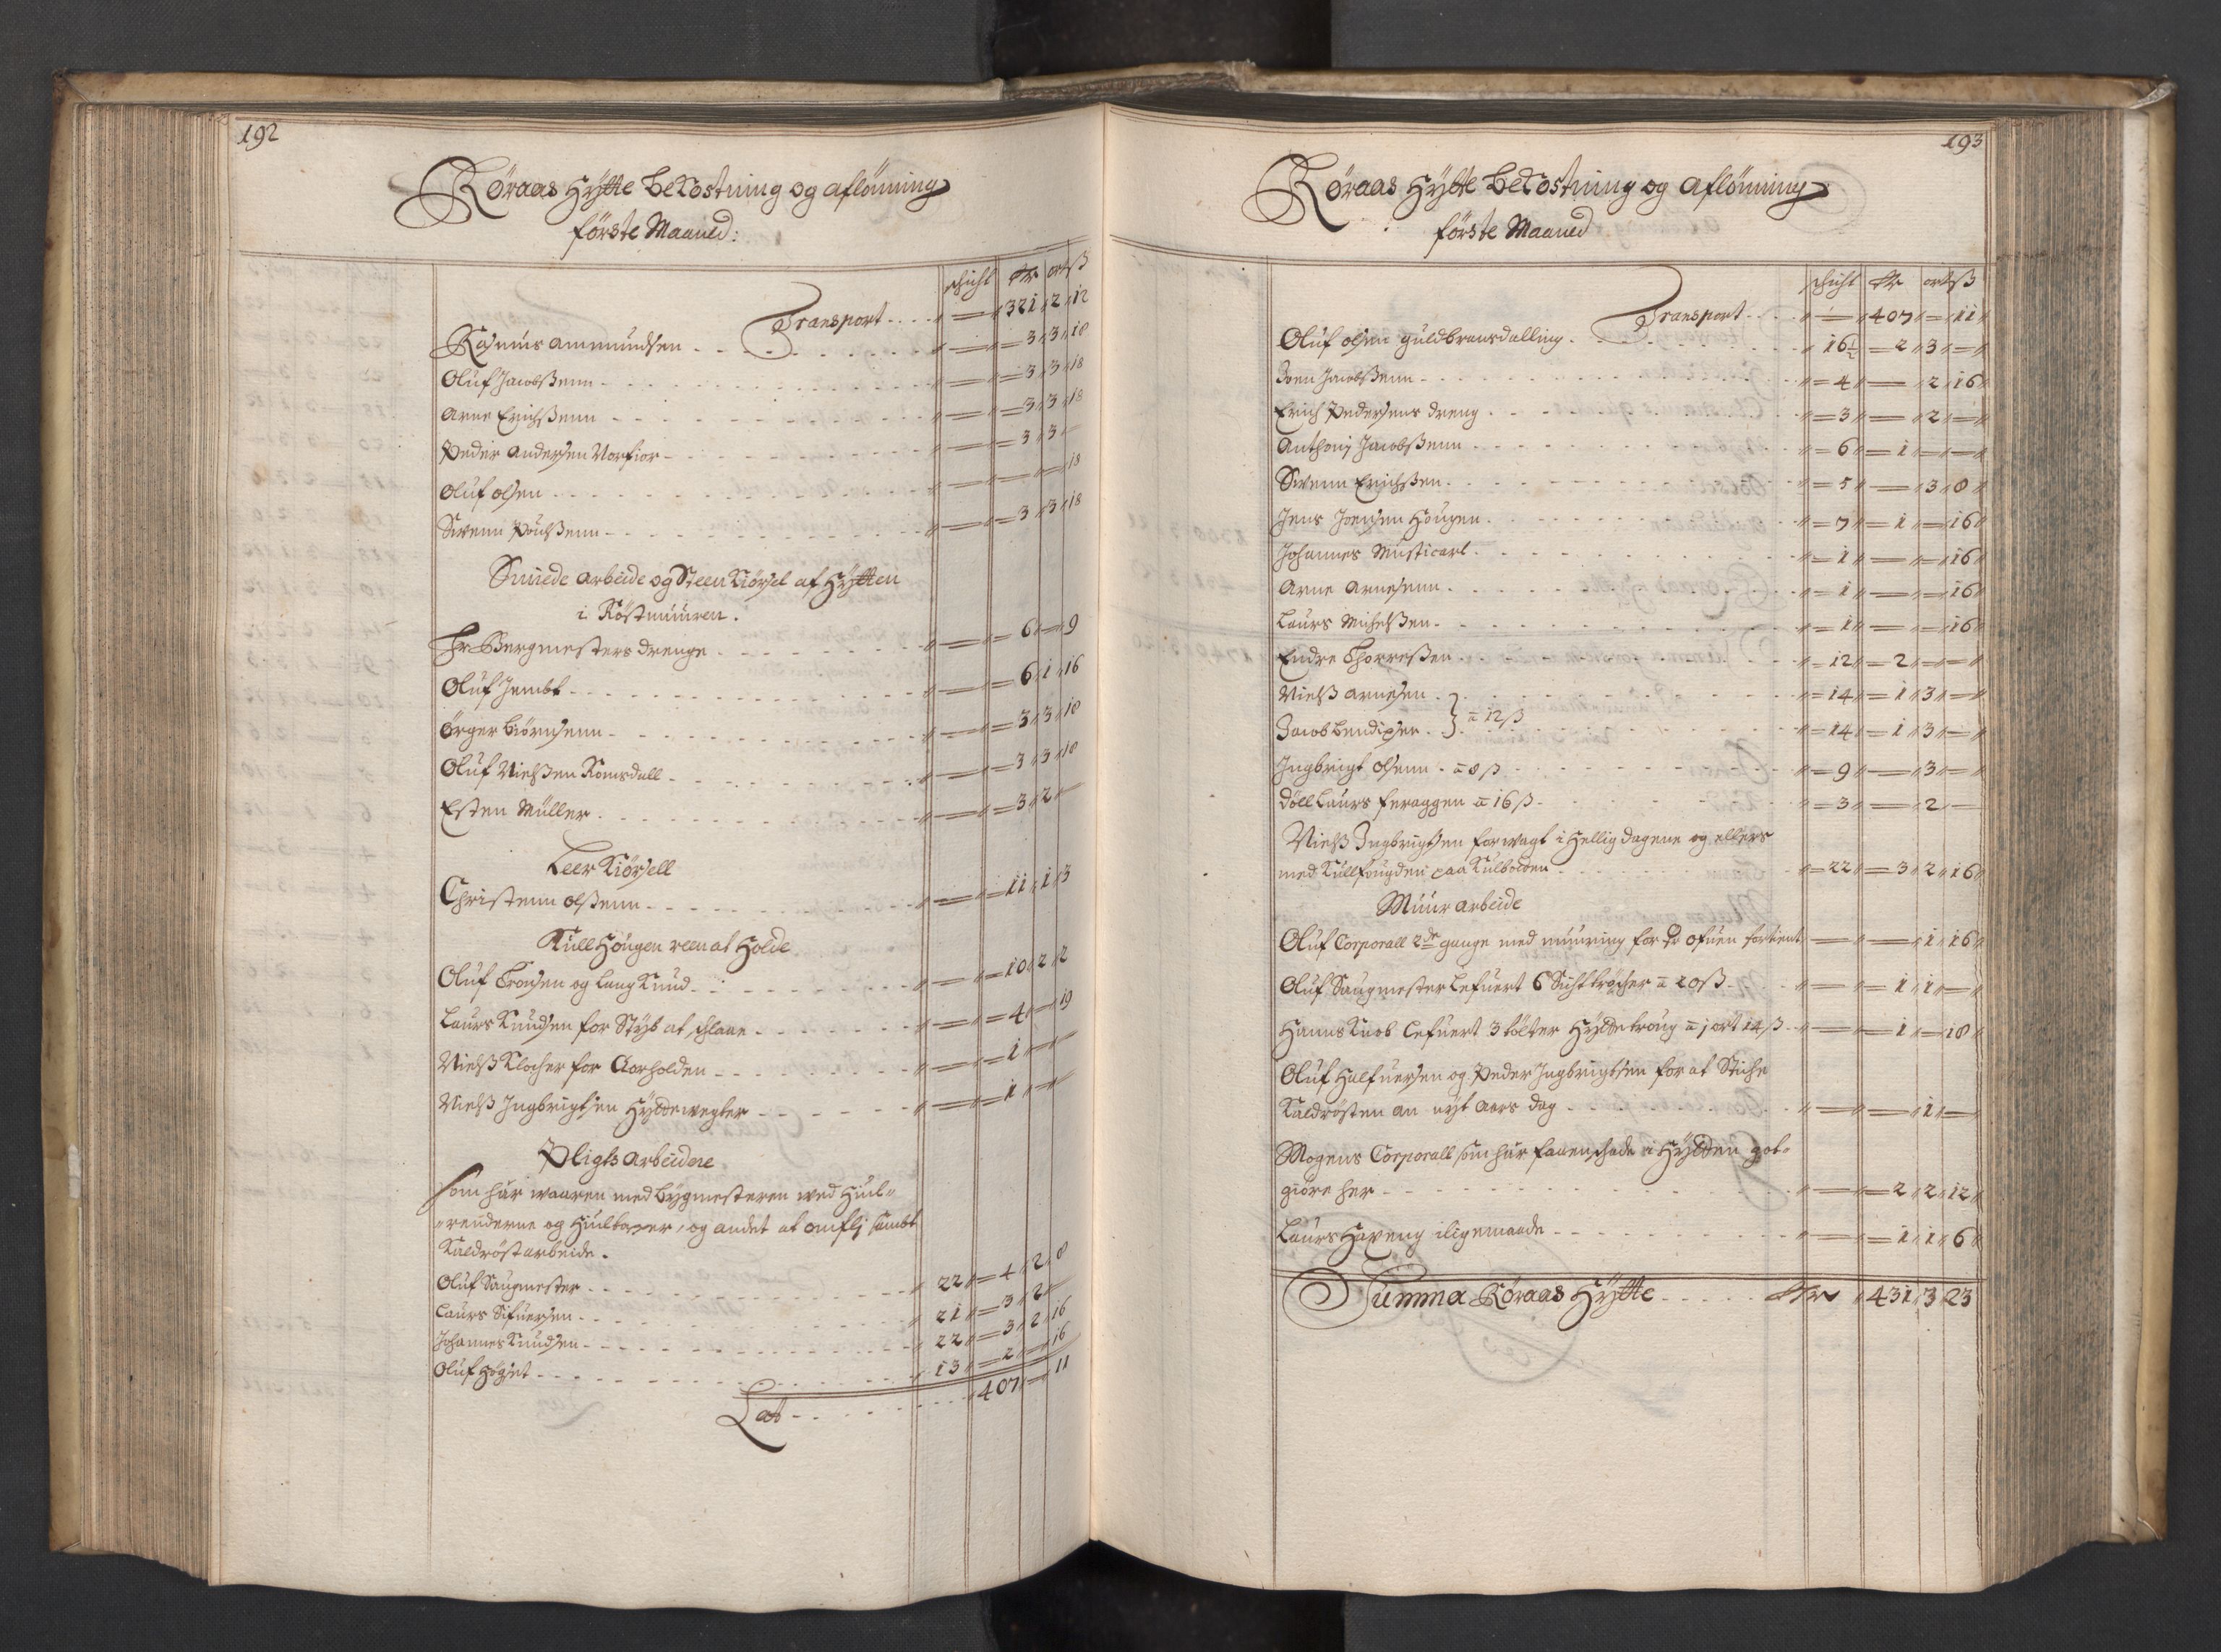 192
Røraas Hytte bekostning og aflønning
første Maaned:
schicht Rdr ort ß
Transport - - - 321 2 12
Rasmus Ammundsen - - - 3 3 18
Oluf Jacobßenn - - - 3 3 18
Arne Erichßenn - - - 3 3 18
Peder Andersen Norfior - - - 3 3 —
Oluf olsen - - - — — 18
Swenn Poulßenn - - - 3 3 18
Smede arbeide og Steen Kiørsel af Hÿtten
i Røstmuuren.
Hr Bergmesters drenge - - - 6 — 9
Oluf Jembt - - - 6 1 16
Ørger Biørnsenn - - - 3 3 18
Oluf Nielßen Romsdall - - - 3 3 18
Esten Müller - - - 3 2 —
Leer Kiørsell
Christenn olßenn - - - 11 1 3
Kull Hougen reen at Holde
Oluf Tronsen og Lang Knud - - - 10 2 2
Laurs Knudsen for Stÿb at schlaae - - - 4 — 19
Nielß Klocher for Aarholden - - - 1 — —
Nielß Ingbrigtsen Hÿttewegter - - - 1 — —
Pligts Arbeidere
som har waaren med bÿgmesteren wed Hiul-
renderne og Hiulboxer, og andet at omflÿ sambt
Kaldrøst arbeide.
Oluf Saugmester - - - 22 4 2 8
Laurs Sifuersen - - - 21 3 2 —
Johannes Knudsen - - - 22 3 2 16
Oluf Høÿset - - - 13 2 — 16
Lat - - - 407 — 11
193
Røraas Hÿtte bekostning og Aflønning
første Maaned
schicht Rdr ort ß
Transport - - - 407 — 11
Oluf olsen guldbransdalling - - - 16½ 2 3 —
Joen Jacobßenn - - - 4 — 2 16
Erich Pedersens dreng - - - 3 — 2 —
Anthonj Jacobßenn - - - 6 1 — —
Swenn Erichßen - - - 5 — 3 8
Jens Joensen Hougen - - - 7 1 — 16
Johannes Musticarl - - - 1 — — 16
Arne Arnesenn - - - 1 — — 16
Laurs Michelßen - - - 1 — — 16
Endre Thorreßen - - - 12 2 — —
Nielß Arnesen - - - 14 1 3 —
Jacob bendixsen } a 12 ß - - - 14 1 3 —
Ingbrigt olsenn - a 8 ß - - - 9 — 3 —
döll Laurs feraggen a 16 ß - - - 3 — 2 —
Nielß Ingbrigtsen for wagt i Hellig dagene og ellers
med Kullfougden paa Kulbolden - - - 22 3 2 16
Muur arbeide
Oluf Corporall 2de gange med muuring for Hr ofuen fortient — — 1 16
Oluf Saugmester lefuert 6 Sichttrøcher a 20 ß - - - 1 1 —
Hanns Knob lefuert 3 tolter Hÿttetroug a 1 ort 14 ß - - - 1 — 18
Oluf Halfuersen og Peder Ingbrigtsen for at Stiche
Kaldrøsten an nÿt Aars dag - - - — 1 —
Mogens Corporall som har faaen schade i Hÿtten got-
giøre her - - - 2 2 12
Laurs Haveng iligemaade - - - 1 1 6
Summa Røraas Hÿtte - - - Rdr 431 3 23